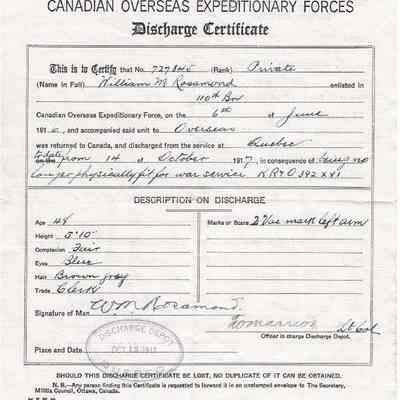 CANADIAN OVERSEAS EXPEDITIONARY FORCES
Discharge Certificate
This is to Certify that No. 727845 (Rank) Private
(Name in Full) William M Rosamond enlisted in
110th Bn
Canadian Overseas Expeditionary Force, on the 6th of June
191 and accompanied said unit to Overseas
was returned to Canada, and discharged from the service at Quebec
to date from 14 of October 1917, in consequence of being no
longer physically fit for war service KR & O 392 XVI
DESCRIPTION ON DISCHARGE
Age 48
Height 5'10"
Complexion Fair
Eyes Blue
Hair Brown gray
Trade Clerk
Marks or Scars 2 Vac marks left arm
Signature of Man W M Rosamond
Lt Col
Officer in charge Discharge Depot.
DISCHARGE DEPOT
OCT 13 1917
Place and Date
SHOULD THIS DISCHARGE CERTIFICATE BE LOST, NO DUPLICATE OF IT CAN BE OBTAINED.
N. B.—Any person finding this Certificate is requested to forward it in an unstamped envelope to The Secretary,
Militia Council, Ottawa, Canada.